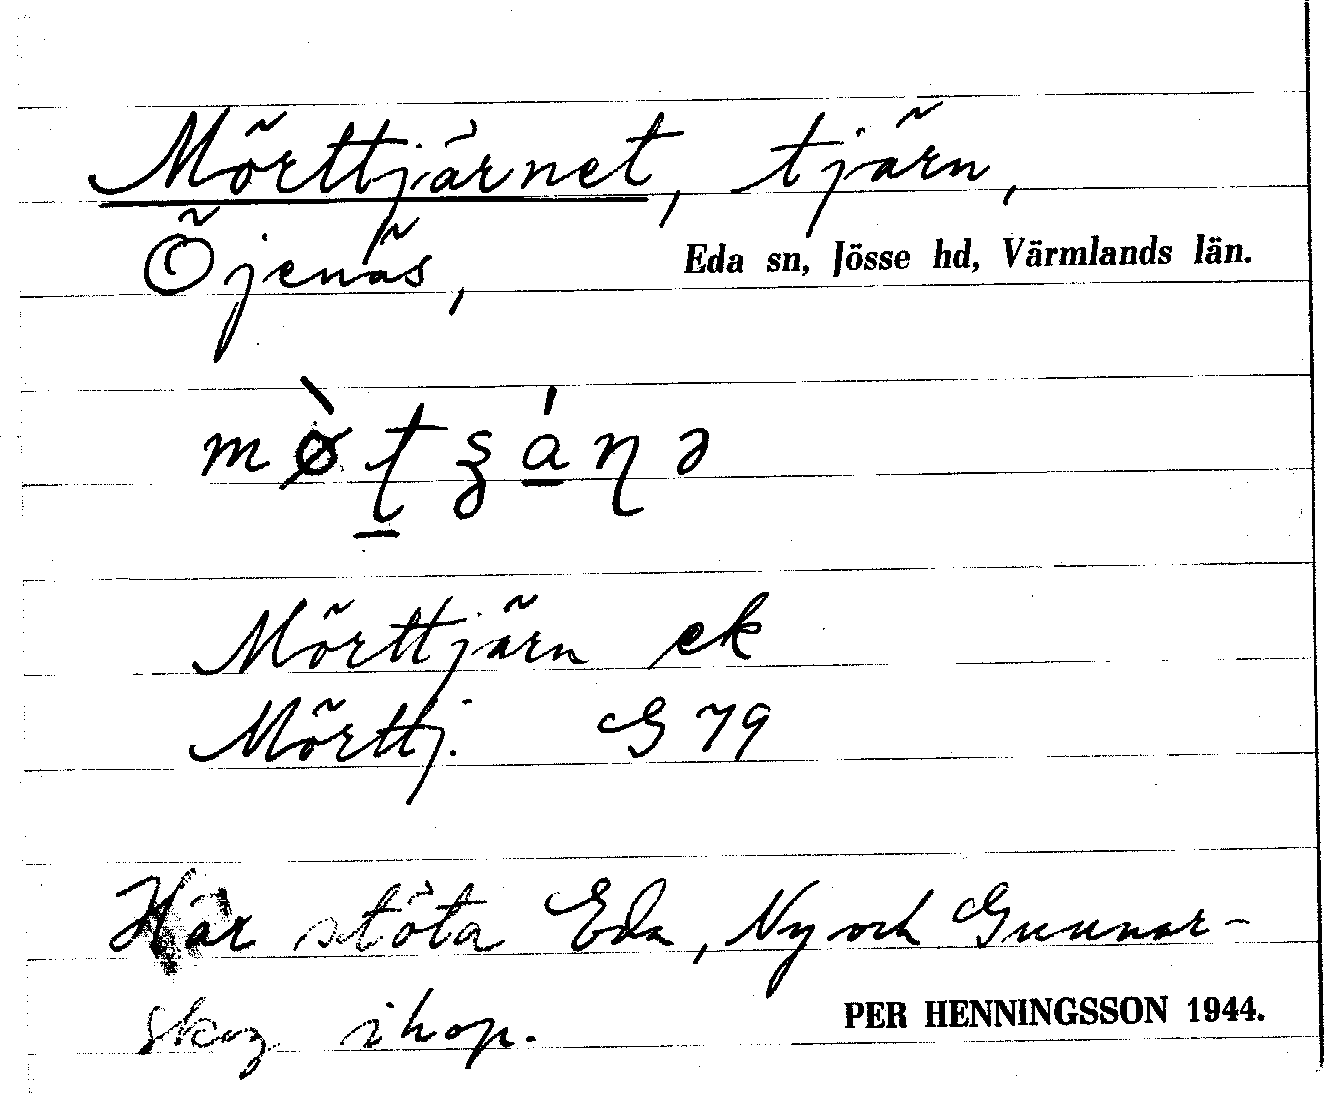 Mörttjärnet, tjärn,
Öjenäs, Eda sn, Jösse hd, Värmlands län.
mø̀ʈʂánə
Mörttjärn ek
Mörttj. G 79
Här stöta Eda, Ny och Gunnar-
skog ihop.
PER HENNINGSSON 1944.